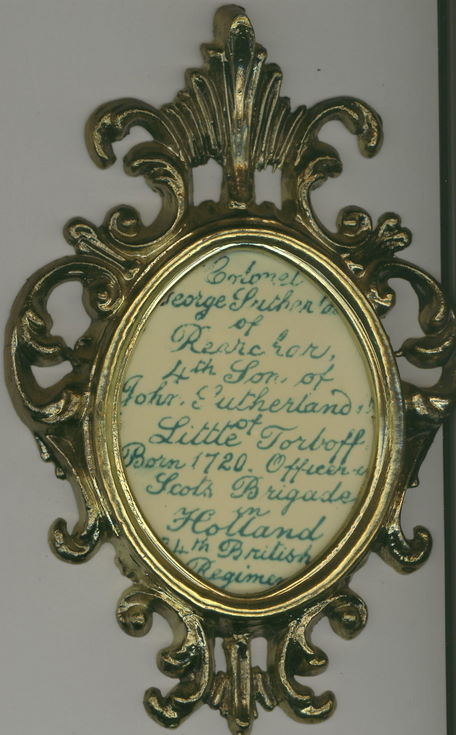 Colonel
George Sutherla
of
Rearchar,
4th Son of
John Sutherland
of
Little Torboff
Born 1720. Officer
Scots Brigade
in
Holland
4th British
Regimen